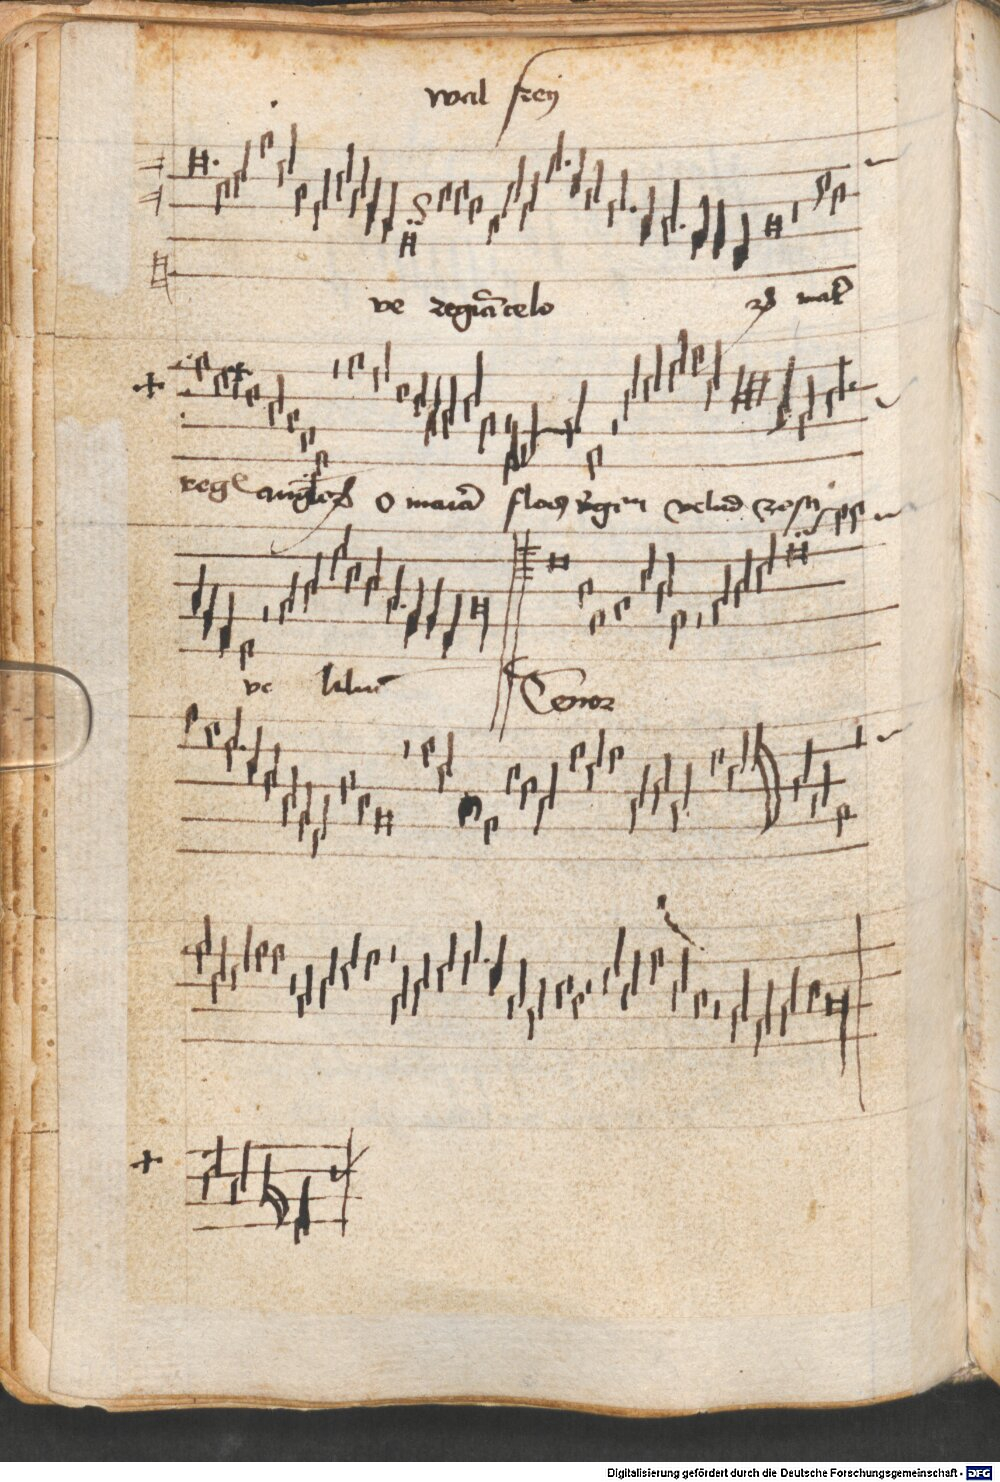 wal frey
ve regina celo mat
reg angloꝝ o maria flos virginu velud rosa
ve liliu
Tenor
Digitalisierung gefördert durch die Deutsche Forschungsgemeinschaft - DFG